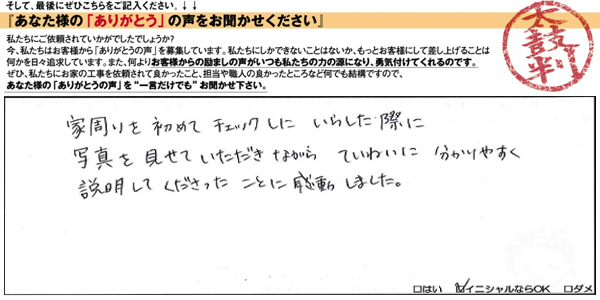 そして、最後にぜひこちらをご記入ください。↓↓
『あなた様の「ありがとう」の声をお聞かせください』
私たちにご依頼されていかがでしたでしょうか?
今、私たちはお客様から「ありがとうの声」を募集しています。私たちにしかできないことはないか、もっとお客様にして差し上げることは
何かを日々追求しています。また、何よりお客様からの励ましの声がいつも私たちの力の源になり、勇気付けてくれるのです。
ぜひ、私たちにお家の工事を依頼されて良かったこと、担当や職人の良かったところなど何でも結構ですので、
あなた様の「ありがとうの声」を“一言だけでも”お聞かせ下さい。
太鼓判
家周りを初めてチェックしにいらした際に
写真を見せていただきながら ていねいに 分かりやすく
説明してくださったことに感動しました。
□はい ☑イニシャルならOK □ダメ